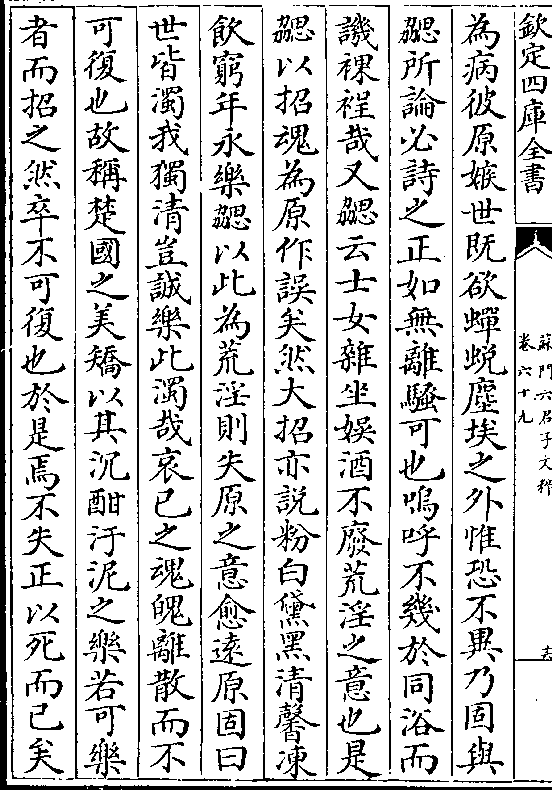 欽定四庫全書
蘇門六君子文粹
卷六十九
為病彼原嫉世既欲蟬蛻塵埃之外惟恐不異乃固與
勰所論必詩之正如無離騷可也嗚呼不幾於同浴而
譏裸裎哉又勰云士女雜坐娛酒不廢荒淫之意也是
勰以招魂為原作誤矣然大招亦説粉白黛黑清馨凍
飲窮年永樂勰以此為荒淫則失原之意愈遠原固曰
世皆濁我獨清豈誠樂此濁哉哀己之魂魄離散而不
可復也故稱楚國之美矯以其沉酣汙泥之樂若可樂
者而招之然卒不可復也於是焉不失正以死而已矣